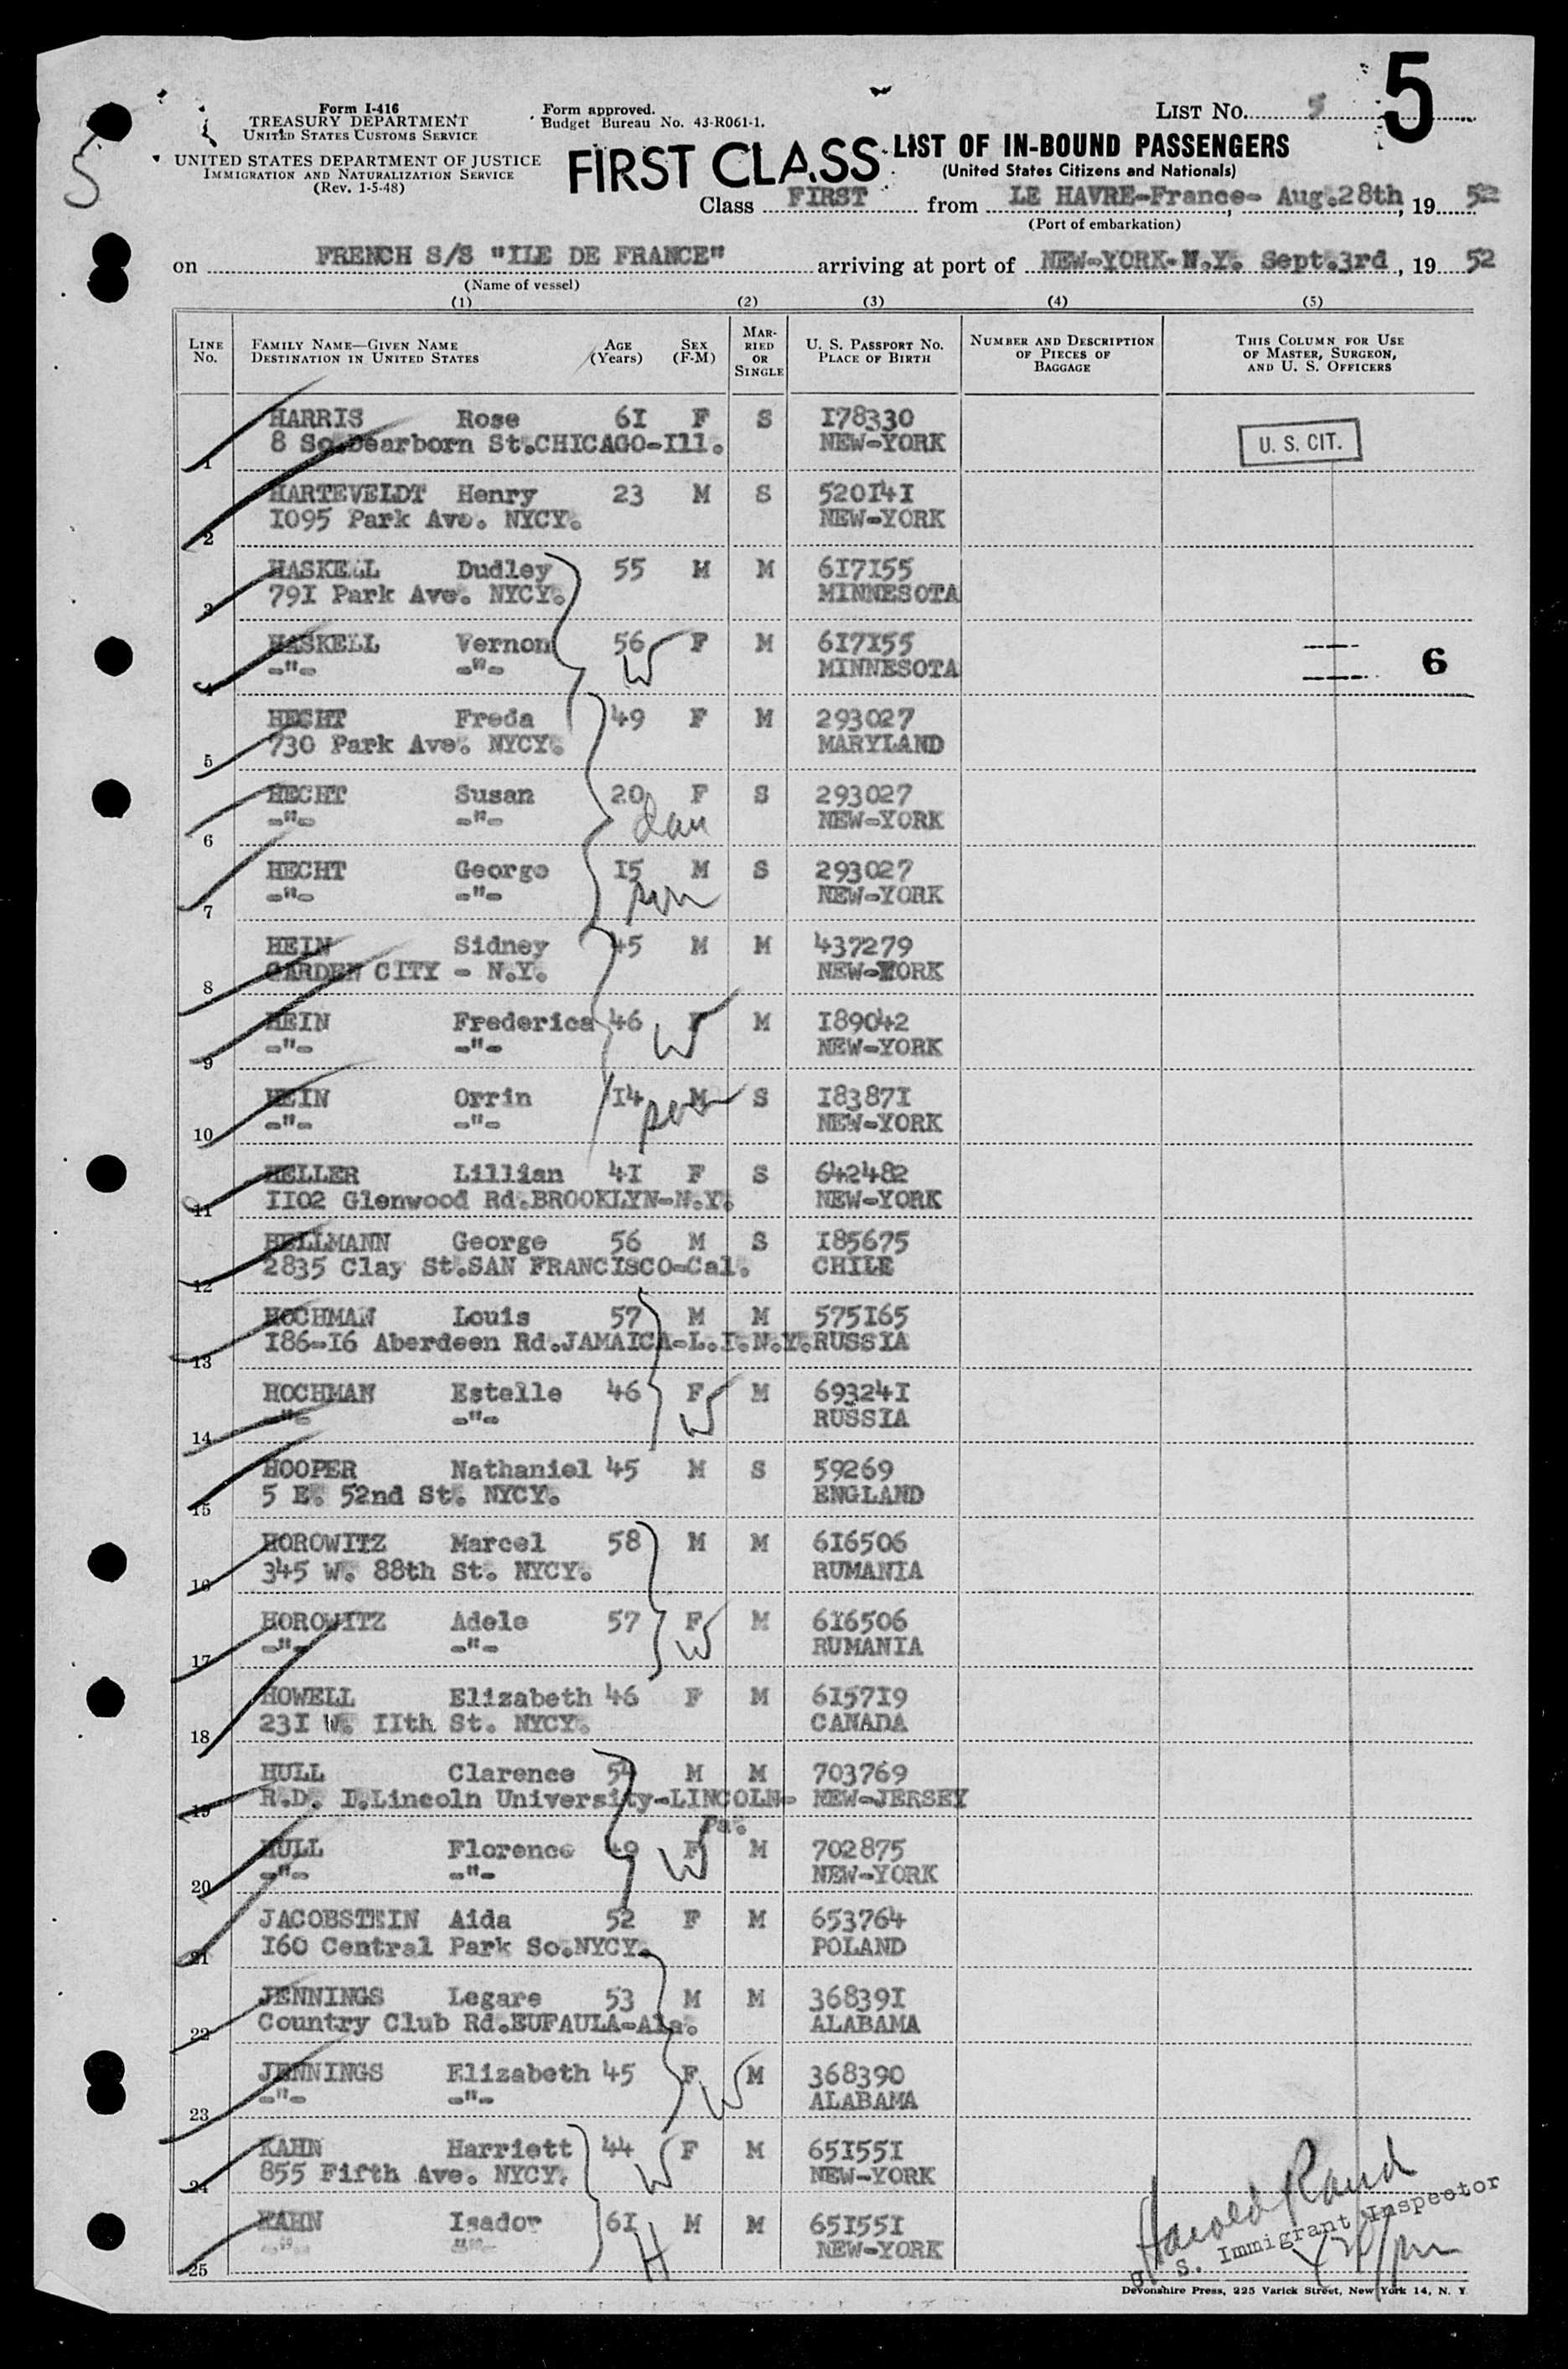 5
5
Form I-416
TREASURY DEPARTMENT
UNITED STATES CUSTOMS SERVICE
UNITED STATES DEPARTMENT OF JUSTICE
IMMIGRATION AND NATURALIZATION SERVICE
(Rev. 1-5-48)
Form approved.
Budget Bureau No. 43-R061-1.
LIST No. 5
FIRST CLASS
LIST OF IN-BOUND PASSENGERS
(United States Citizens and Nationals)
Class FIRST from LE HAVRE-France- Aug.28th, 19 52
(Port of embarkation)
on FRENCH S/S "ILE DE FRANCE" arriving at port of NEW-YORK-N.Y. Sept.3rd, 19 52
(Name of vessel)
(1) (2) (3) (4) (5)
LINE No.
FAMILY NAME—GIVEN NAME
DESTINATION IN UNITED STATES
AGE (Years)
SEX (F-M)
MARRIED OR SINGLE
U. S. PASSPORT NO.
PLACE OF BIRTH
NUMBER AND DESCRIPTION OF PIECES OF BAGGAGE
THIS COLUMN FOR USE OF MASTER, SURGEON, AND U. S. OFFICERS
HARRIS Rose 61 F S 178330
1 8 So.Dearborn St.CHICAGO-Ill. NEW-YORK
U. S. CIT.
HARTEVELDT Henry 23 M S 520141
2 1095 Park Ave. NYCY. NEW-YORK
HASKELL Dudley 55 M M 617155
3 791 Park Ave. NYCY. MINNESOTA
HASKELL Vernon 56 F M 617155
4 -"- -"- W MINNESOTA
6
HECHT Freda 49 F M 293027
5 730 Park Ave. NYCY. MARYLAND
HECHT Susan 20 F S 293027
6 -"- -"- dau NEW-YORK
HECHT George 15 M S 293027
7 -"- -"- son NEW-YORK
HEIN Sidney 45 M M 437279
8 GARDEN CITY - N.Y. NEW-YORK
HEIN Frederica 46 F M 189042
9 -"- -"- W NEW-YORK
HEIN Orrin 14 M S 183871
10 -"- -"- son NEW-YORK
HELLER Lillian 41 F S 642482
11 1102 Glenwood Rd.BROOKLYN-N.Y. NEW-YORK
HELLMANN George 56 M S 185675
12 2835 Clay St.SAN FRANCISCO-Cal. CHILE
HOCHMAN Louis 57 M M 575165
13 186-16 Aberdeen Rd.JAMAICA-L.I.N.Y. RUSSIA
HOCHMAN Estelle 46 F M 693241
14 -"- -"- W RUSSIA
HOOPER Nathaniel 45 M S 59269
15 5 E. 52nd St. NYCY. ENGLAND
HOROWITZ Marcel 58 M M 616506
16 345 W. 88th St. NYCY. RUMANIA
HOROWITZ Adele 57 F M 616506
17 -"- -"- W RUMANIA
HOWELL Elizabeth 46 F M 615719
18 231 W. 11th St. NYCY. CANADA
HULL Clarence 54 M M 703769
19 R.D. I.Lincoln University-LINCOLN- NEW-JERSEY
Pa.
HULL Florence 49 F M 702875
20 -"- -"- W NEW-YORK
JACOBSTEIN Aida 52 F M 653764
21 160 Central Park So.NYCY. POLAND
JENNINGS Legare 53 M M 368391
22 Country Club Rd.EUFAULA-Ala. ALABAMA
JENNINGS Elizabeth 45 F M 368390
23 -"- -"- W ALABAMA
KAHN Harriett 44 F M 651551
24 855 Fifth Ave. NYCY. W NEW-YORK
KAHN Isador 61 M M 651551
25 -"- -"- H NEW-YORK
Harold Rand
U. S. Immigrant Inspector
Devonshire Press, 225 Varick Street, New York 14, N. Y.